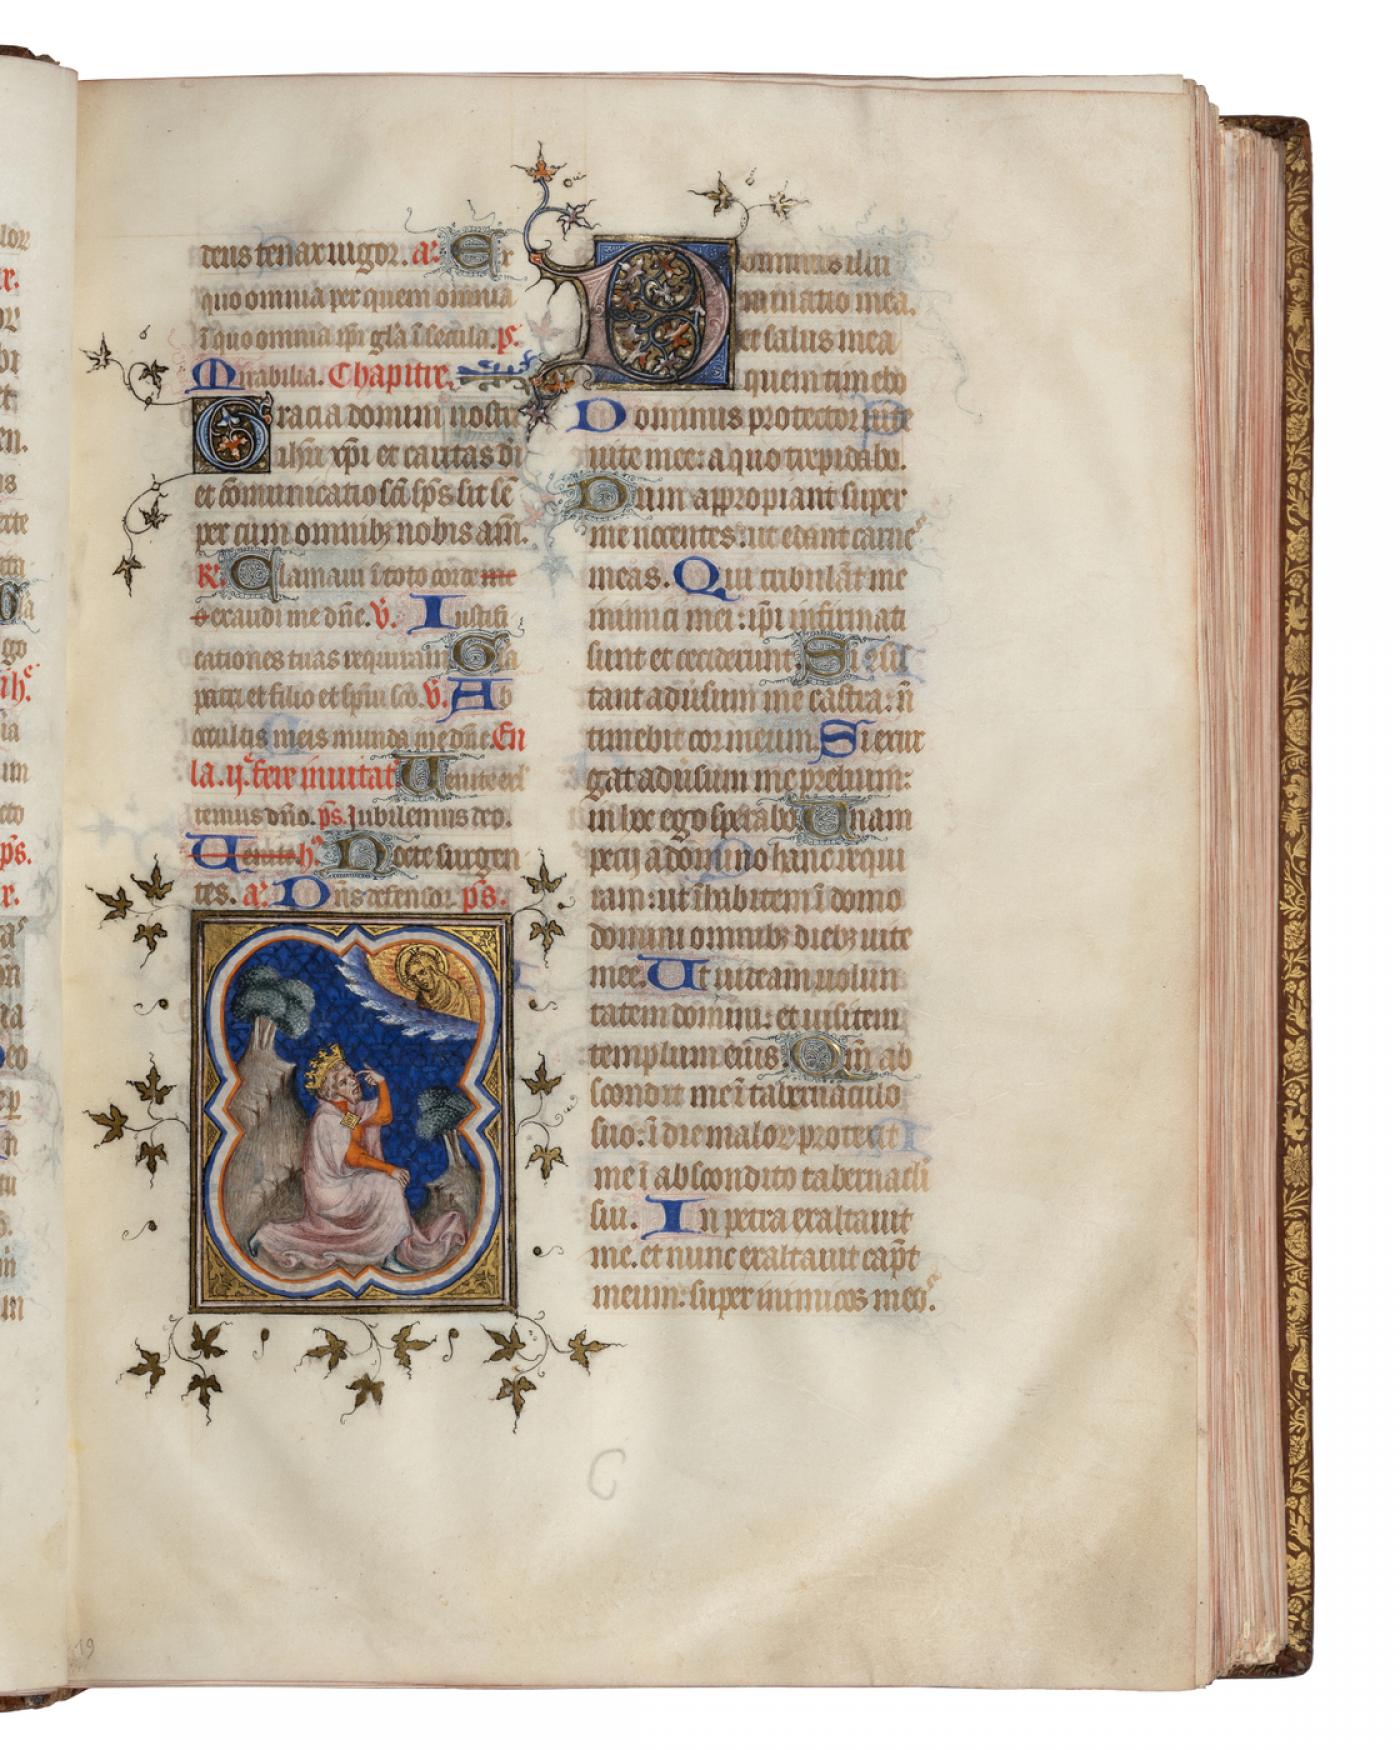 deus tenax uigor. a. Ex
quo omnia per quem omnia
ī quo omnia ipī gl̄a ī secula. p̄s.
Mirabilia. Chapitre.
Gracia domini nostri
ihū xp̄i et caritas di
et cōmunicatio sc̄i sp̄s sit sē
per cum omnibȝ nobis am̄.
R. Clamaui ī toto corde me
o exaudi me dn̄e. v̄. Iustifi
cationes tuas requiram Gl̄a
patri et filio et sp̄ui sc̄o. v̄. Ab
occultis meis munda me dn̄e. En
la .ij. fere inuitat̄ Uenite ex̄l
temus dn̄o. ps. Iubilemus deo.
Uenite h. Nocte surgen
tes. a. Dn̄s defensor. ps.
Dominus illu
minatio mea.
et salus mea
quem timebo
Dominus protector uite
uite mee: a quo trepidabo.
Dum appropiant super
me nocentes: ut edant carnes
meas. Qui tribulāt me
inimici mei: ip̄i infirmati
sunt et ceciderunt. Si ɔsis
tant aduersum me castra: n̄
timebit cor meum. Si exur
gat aduersum me prelium:
in hoc ego sperabo Unam
pecij a domino hanc requi
ram: ut īhabitem ī domo
domini omnibȝ diebȝ uite
mee. Ut uideam uolun
tatem domini: et uisitem
templum eius. Qm̄ ab
scondit me ī tabernaculo
suo: ī die malor protexit
me ī abscondito tabernacli
sui. In petra exaltauit
me. et nunc exaltauit capt̄
meum: super inimicos meos.
C
19